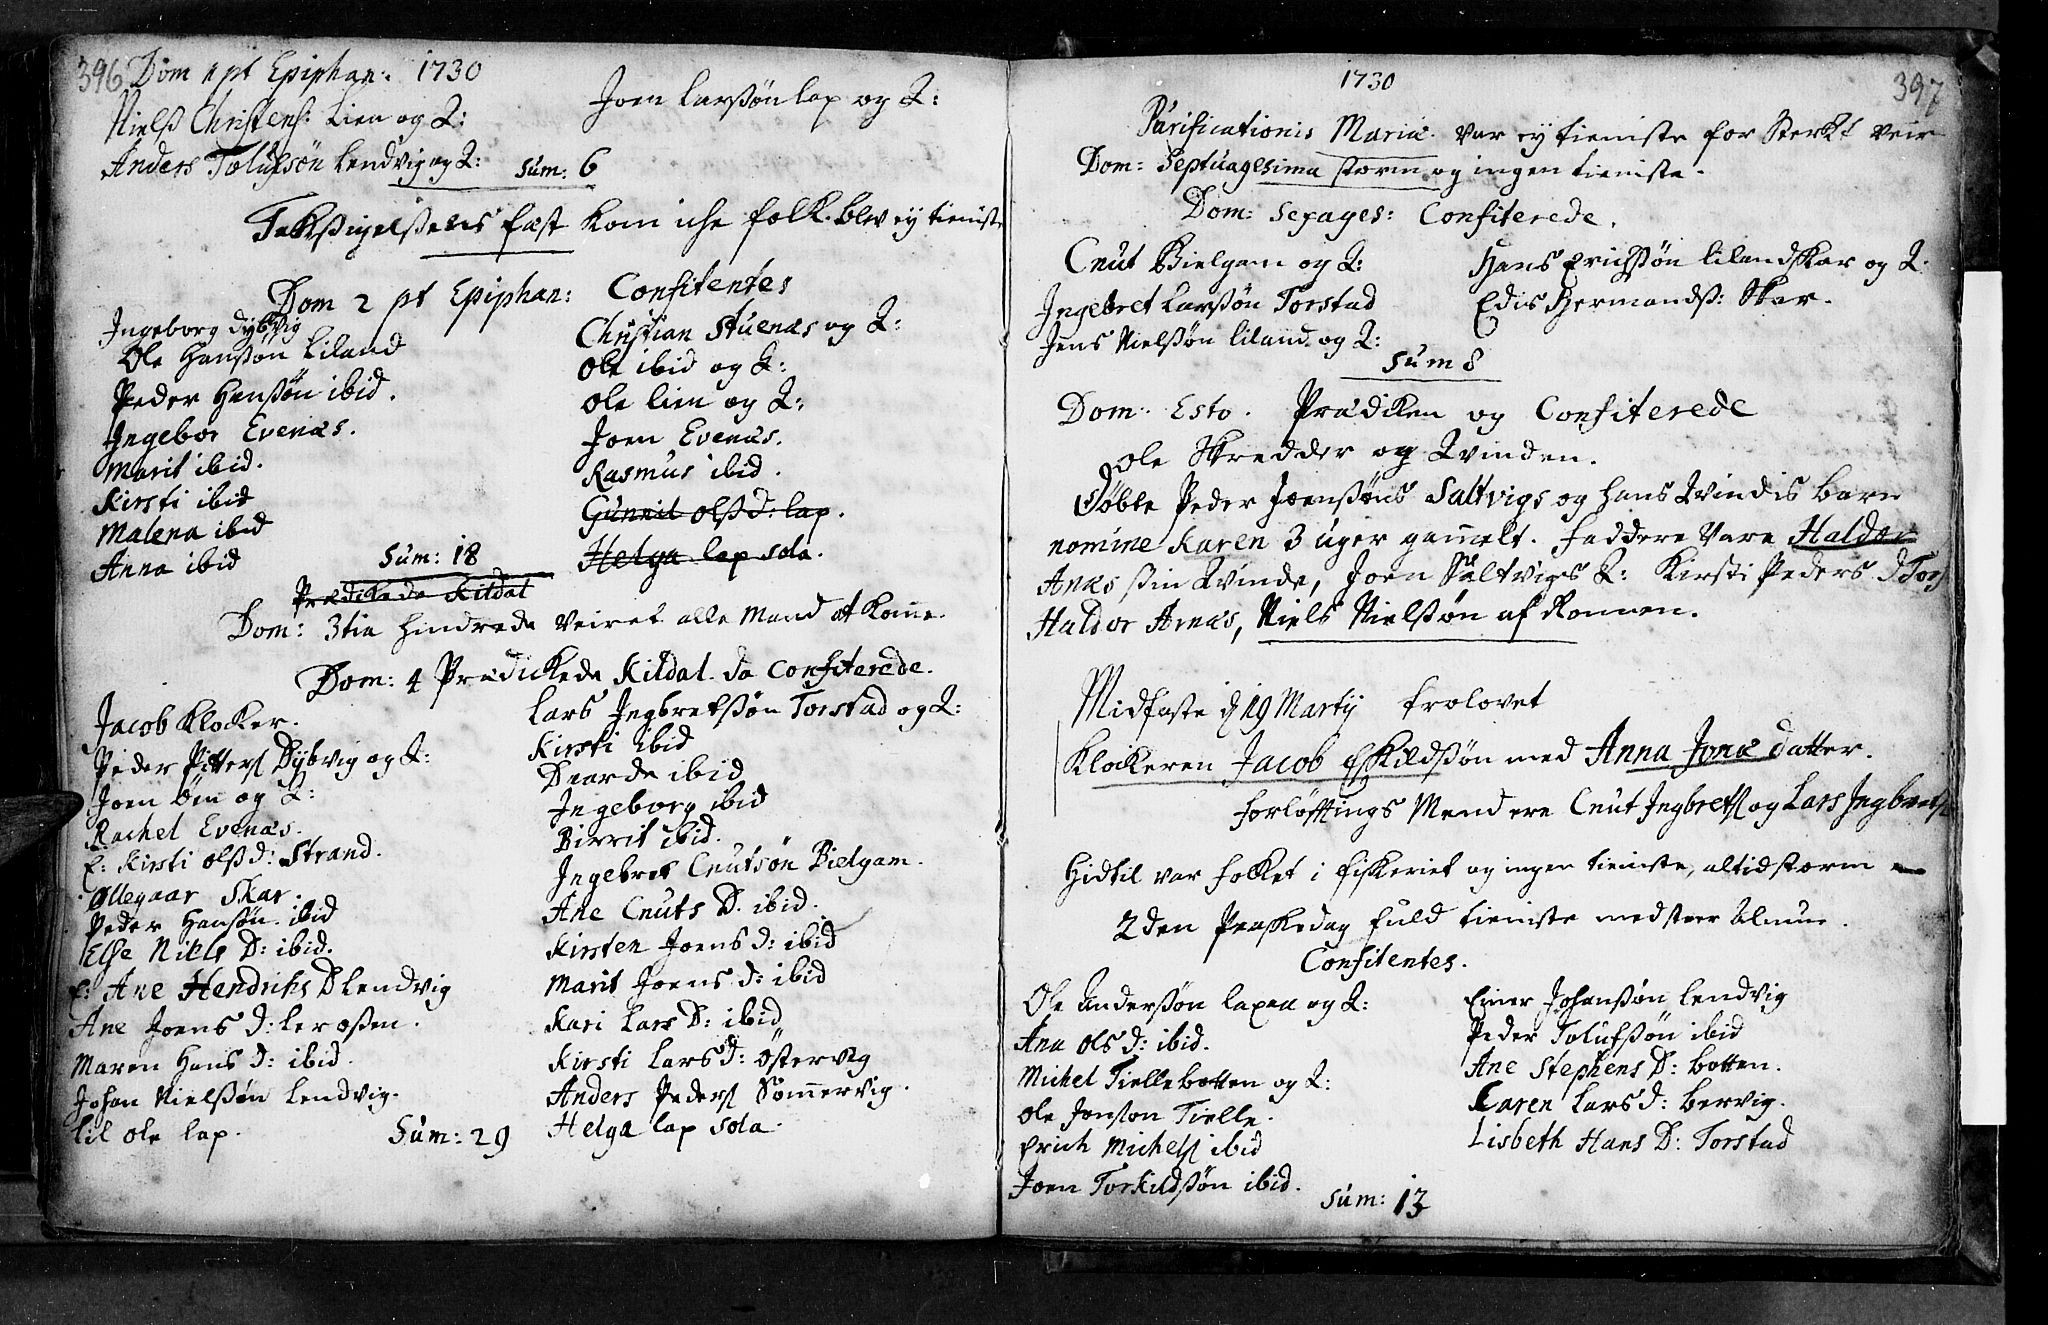 396 Dom 1 pt Epiphan: 1730
Nielß Christens: Lien og Q:
Anders Tolufsøn Lendvig og Q:
Joen Larssøn lap og Q:
Sum: 6
Takßigelßens fæst kom iche folk. blev ey tieniste
Dom 2 pt Epiphan: Confitentes
Ingeborg Dybvig
Ole Hanssøn Liland
Peder Hanssøn ibid.
Ingebor Evenæs.
Marit ibid.
Kirsti ibid
Malena ibid
Anna ibid
Sum: 18
Christian Stuenæs og Q:
Ole ibid og Q:
Ole lien og Q:
Joen Evenæs.
Rasmus ibid.
Gunnil olß d: lap.
Helga lap sola.
Prædikede Kildal
Dom: 3tia hindrede veiret alle Mand at komme.
Dom: 4 Prædickede Kildal. da Confiterede.
Jacob Klocker.
Peder Pitters Dybvig og Q:
Joen Øen og Q:
Rachel Evenæs.
E: Kirsti olß d: Strand.
Ollegaar Skar.
Peder Hansøn. ibid
Else Niels D: ibid.
E: Ane Hendrichs D Lendvig
Ane Joens d: Lerosen.
Maren Hans d: ibid.
Johan Nielssøn Lendvig.
lil ole lap.
Sum: 29
Lars Ingbretssøn Torstad og Q:
Kirsti ibid
ibid
Ingeborg ibid
Birrit ibid.
Ingebret Cnutsøn Bielgam.
Ane Cnuts D. ibid.
Kirsten Joens d: ibid
Marit Joens d: ibid
Kari Lars D: ibid
Kirsti Lars d: Østervig
Anders Peders Sommervig.
Helga lap sola.
1730
397
Purificationis Mariæ. var ey tieniste for sterkt veir
Dom: Septuagesima storm og ingen tieniste.
Dom: Sexages: Confiterede.
Cnut Bielgam og Q:
Ingebret Larssøn Torstad
Jens Nielssøn liland og Q:
Hans Erichssøn lilandskar og Q.
Edis Hermandß: Skar.
Sum 8
Dom: Esto. Prædiken og Confiterede
Ole Skredder og Qvinden.
Døbte Peder Joenssøns Saltvigs og hans Qvindis barn
nomine Karen 3 uger gammelt. Faddere vare Haldor
Anæs sin Qvinde, Joen Saltvigs Q: Kirsti Peders d Tors
Haldor Arnæs, Niels Nielssøn af
Midfaste d 19 Martij trolovet
Klockeren Jacob Eskildssøn med Anna Jonæ datter.
Forløftings Mend ere Cnut Ingbrets og Lars Ingbrets
Hidtil var folket i fiskeriet og ingen tieniste, altid storm
2den Paaskedag fuld tieniste med stoer Almue.
Confitentes.
Ole Anderssøn laxaa og Q:
Ana ols d: ibid.
Michel Tiellebotten og Q:
Ole Jonson Tielle.
Erich Michels ibid
Joen Torkildssøn ibid.
Einer Johanssøn Lendvig
Peder Tolufssøn ibid
Ane Stephens D: botten.
Caren Lars d: Bervig.
Lisbeth Hans D: Torstad
Sum: 13